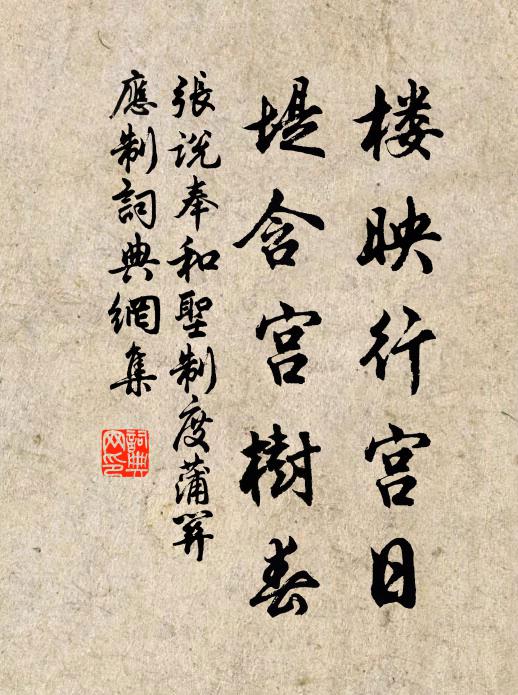 楼映行宫日
堤含宫樹春
張説奉和聖制度蒲関
應制詞典網集
詞典網印